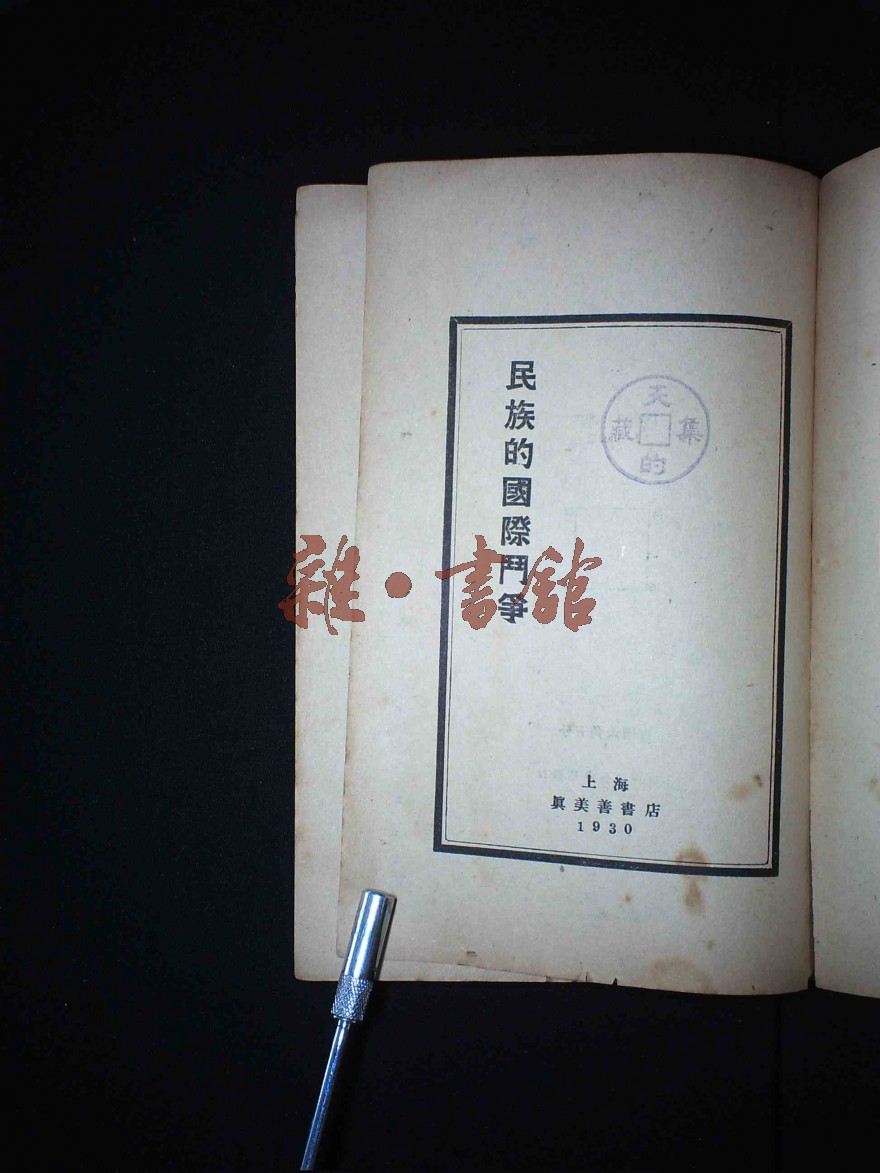 民族的國際鬥爭
天
藏 集
的
雜·書舘
上海
眞美善書店
1930